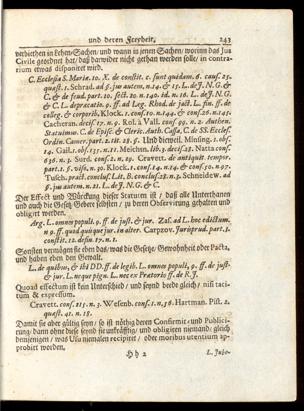 und deren Freyheit. 243
verbiethen in Lehen-Sachen/ und wann in jenen Sachen/ worinn das Jus
Civile geordnet hat/ daß darwider nicht gethan werden solle/ in contra-
rium etwas disponiret wird.
C. Ecclesia S. Mariæ. 10. X. de constit. c. sunt quidam. 6. caus. 25.
quæst. 1. Schrad. ad §. jus autem. n. 14. & 15. L. de J. N. G. &
C. & de feud. part. 10. sect. 10. n. 140. id. n. 16. L. de J. N. G.
& C. L. deprecatio. 9. ff. ad Leg. Rhod. de jact. L. fin. ff. de
colleg. & corporib. Klock. 1. cons. 10. n. 144. & cons. 26. n. 145
Cacheran. decis. 17. n. 9. Rol. à Vall. cons. 99. n. 2. Authen.
Statuimus. C. de Episc. & Cleric. Auth. Cassa, C. de SS. Eccles.
Ordin. Camer. part. 2. tit. 28. §. Und dieweil. Minsing. 1. obs.
14. Gail. 1. obs. 13. n. 11. Meichsn. lib. 3. decis. 12. Natta cons.
636. n. 3. Surd. cons. 2. n. 29. Cravett. de antiquit. tempor.
part. 1. §. visis. n. 30. Klock. 1. cons. 14. n. 14. & cons. 10. n. 97.
Tusch. pract. conclus. Lit. S. conclus. 28. n. 3. Schneidew. ad
§. jus autem. n. 21. L. de J. N. G. & C.
Der Effect und Würckung dieser Statuten ist / daß alle Unterthanen
und auch die Gesetz-Gebere selbsten / zu deren Observirung gehalten und
obligirt werden.
Arg. L. omnes populi. 9. ff. de just. & jur. Zas. ad L. hoc edictum.
n. 9. ff. quod quisque jur. in alter. Carpzov. Jurisprud. part. 1.
constit. 12. defin. 17. n. 1.
Sonsten vermögen sie eben das/ was die Gesetze/ Gewohnheit oder Pacta,
und haben eben den Gewalt.
L. de quibus, & ibi DD. ff. de legib. L. omnes populi, 9. ff. de just.
& jur. L. neque pign. L. nec ex Prætorio ff. de R. J.
Quoad effectum ist kein Unterschied / und seynd beede gleich/ nisi taci-
tum & expressum.
Cravett. cons. 215. n. 3. Wesenb. cons. 1. n. 58. Hartman. Pist. 2.
quæst. 41. n. 18.
Damit sie aber gültig seyn/ so ist nöthig deren Confirmir- und Publici-
rung/ dann ohne diese seynd sie unkräfftig/ und obligiren niemand/ gleich
demjenigen/ was Usu nemalen recipiret / oder moribus utentium ap-
probirt worden,
Hh 2 L. Jubo-